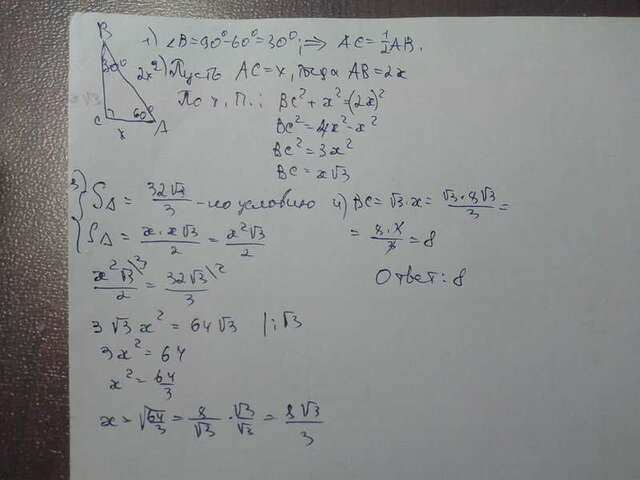 B
30°
2x
x√3
C
60°
A
x
1) ∠B=90°-60°=30°; ⇒ AC=1/2AB.
2) Пусть AC=x, тогда AB=2x
По т. П.: BC²+x²=(2x)²
BC²=4x²-x²
BC²=3x²
BC=x√3
3) S△ = 32√3/3 - по условию
S△ = x·x√3/2 = x²√3/2
x²√3/2 \3 = 32√3/3 \2
3√3x² = 64√3 |:√3
3x²=64
x²=64/3
x=√64/3 = 8/√3 · √3/√3 = 8√3/3
4) BC=√3·x= √3·8√3/3 =
= 8·3/3 = 8
Ответ: 8